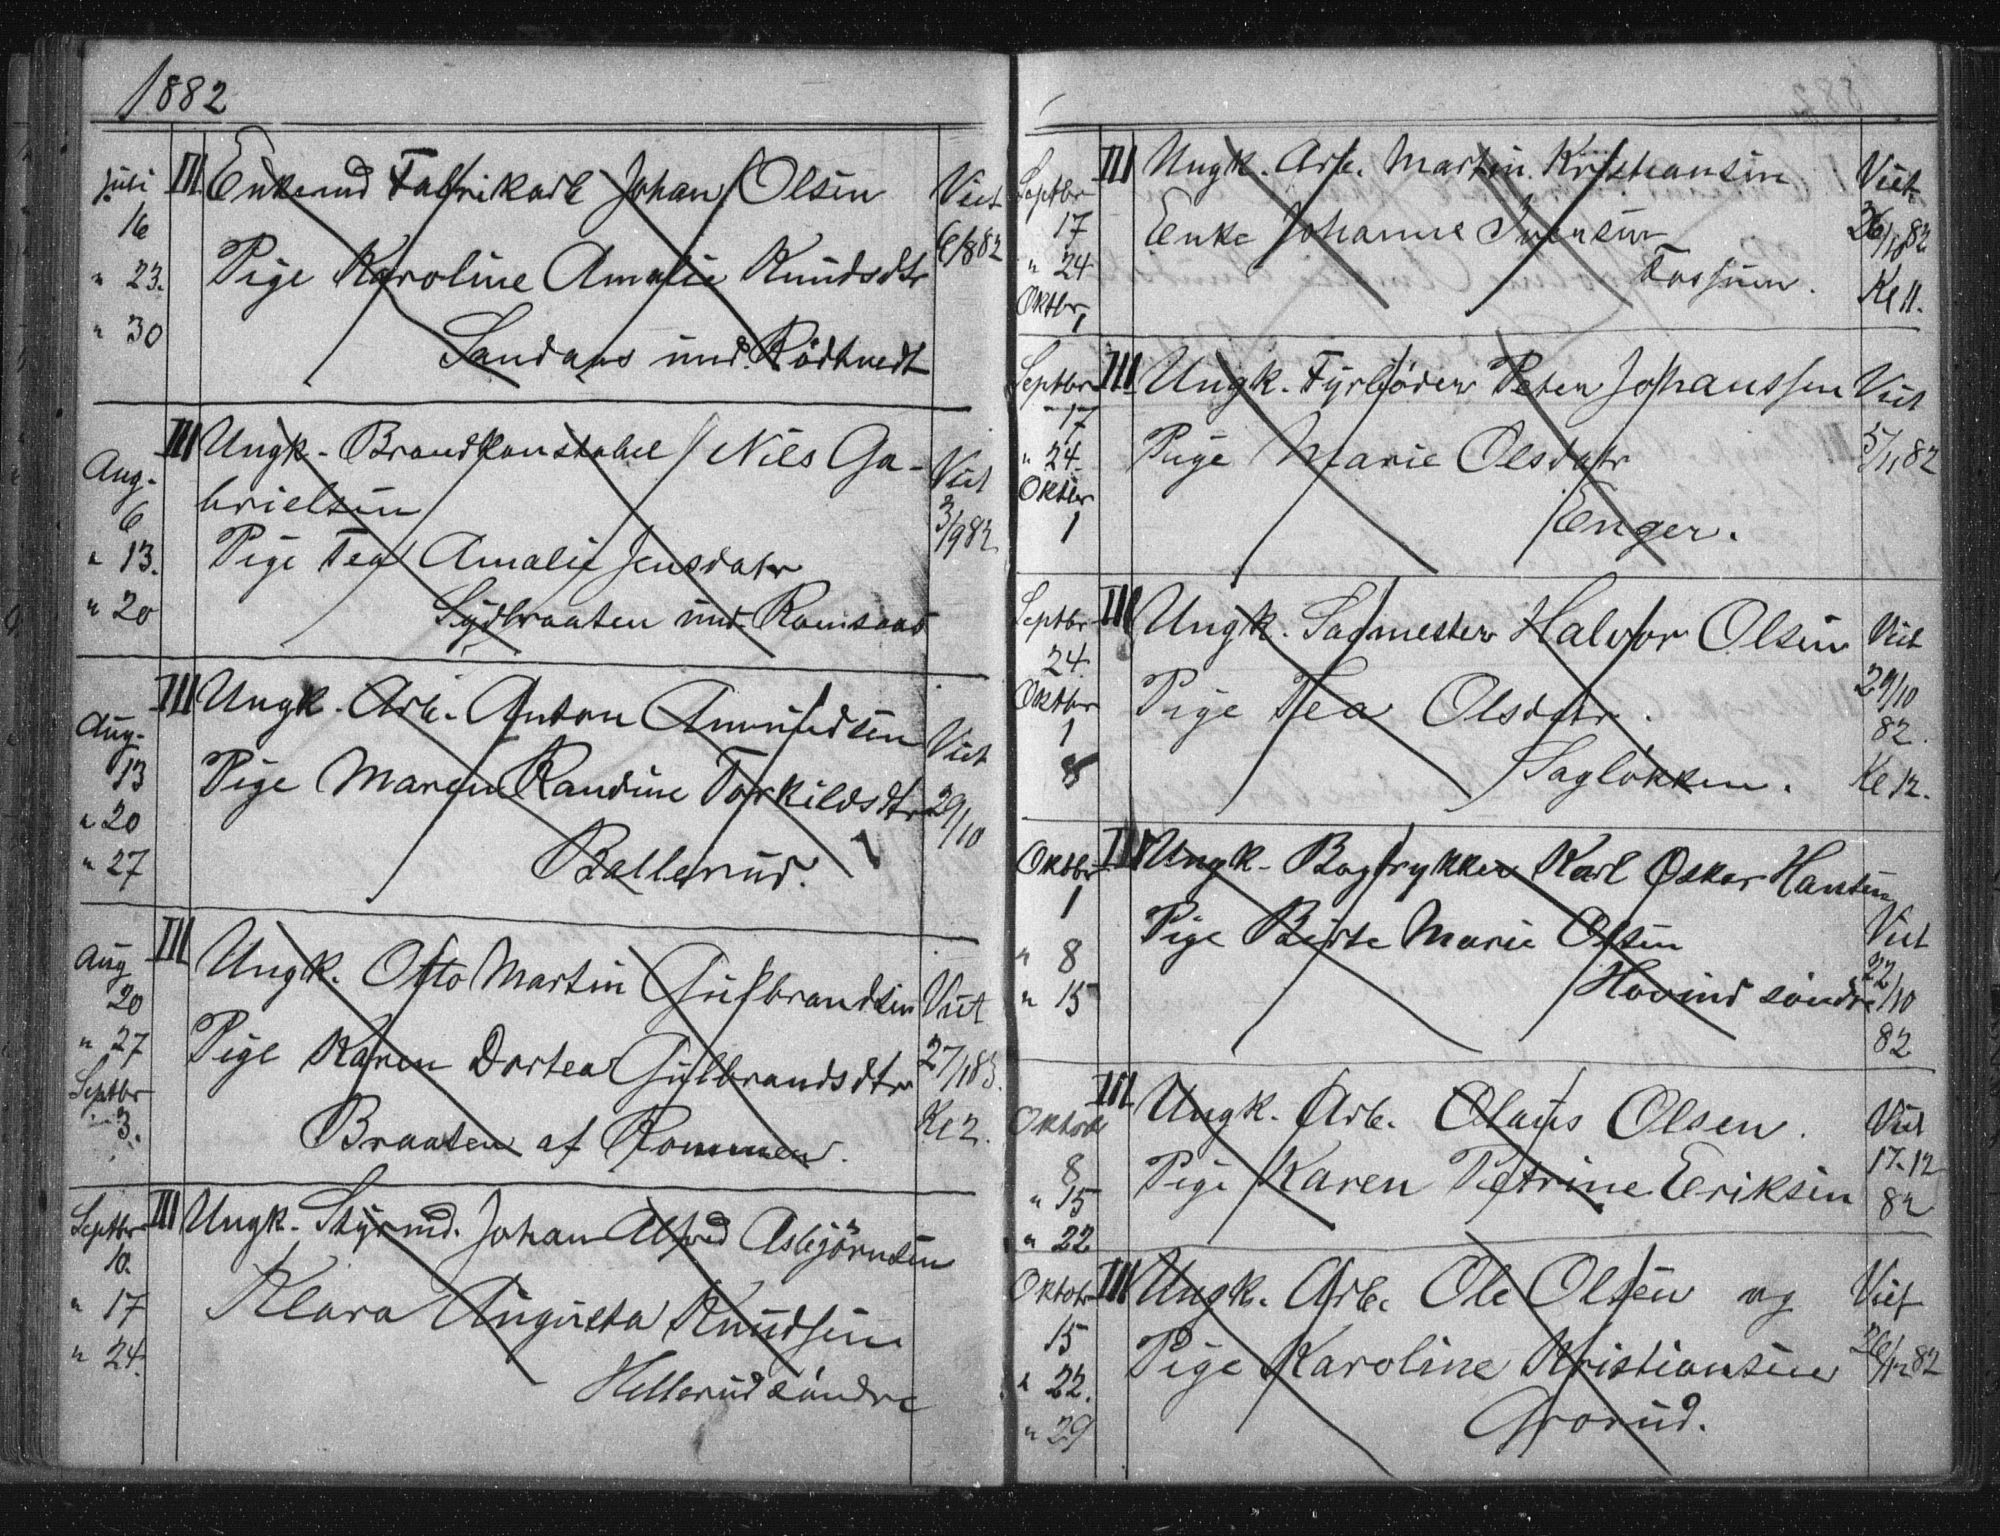 1882
Juli III Enkemd Fabrikarb Johan Olsen Viet
16 6/8 82
" 23. Pige Karoline Amalie Knudsdtr
" 30 Sandaas und. Rödtvedt
III Ungk. Brandkonstabel Nils Ga-
Aug. brielsen Viet
6 3/9 82
" 13. Pige Tea Amalie Jensdatr
" 20 Lydbraaten und. Ramsaas
III Ungk. Arb. Anton Amundsen
Aug. Viet
13 Pige Maren Randine Torkildsdtr 29/10
" 20
" 27 Ballerud.
III
Aug Ungk. Otto Martin Gulbrandsen Viet
20
" 27 Pige Karen Dortea Gulbrandsdtr 27/1 83.
Septbr
3. Braaten af Rommen. Kl 2.
Septbr III Ungk. Styrmd. Johan Alfred Asbjörnsen
10.
" 17 Klara Augusta Knudsen
" 24. Hellerud söndre
Septbr III Ungk. Arb. Martin Kristiansen Viet
17 Enke Johanne Svensen 26/10 82
" 24 Fossum.
Oktbr 1 Kl 11.
Septbr III Ungk. Fyrböder Peter Johanssen Viet
17
" 24. Pige Marie Olsdatr 5/11 82
Oktbr
1 Enger.
Septbr III Ungk. Sagmester Halvor Olsen Viet
24. 29/10
Oktbr Pige Tea Olsdatr. 82.
1
8 Sagløkken. Kl 12.
Oktbr III Ungk. Bogtrykker Karl Oskar Hansen
1 Pige Birte Marie Olsen Viet
" 8 22/10
" 15 Hovind söndre 82
III Ungk. Arb. Olaus Olsen. Viet
Oktobr 17.12
8 Pige Karen Petrine Eriksen 82
" 15
" 22
Oktobr III Ungk. Arb. Ole Olsen og Viet
15 Pige Karoline Kristiansen 26/12 82
" 22.
" 29 Grorud.